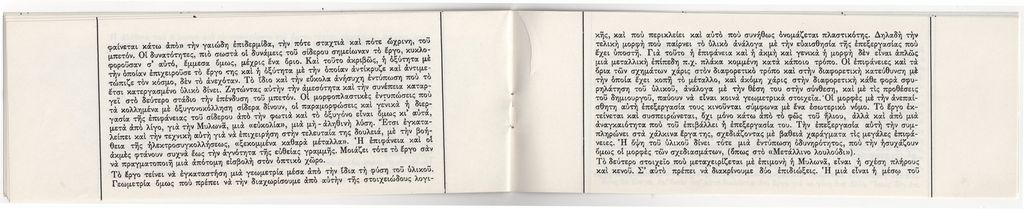 φαίνεται κάτω ἀπὸ» τὴν γαιώδη ἐπιδερμίδα, τὴν πότε σταχτιὰ καὶ πότε ὤχρινη, τοῦ
μπετόν. Οἱ δυνατότητες, πιὸ σωστὰ οἱ δυνάμεις τοῦ σίδερου σημείωναν τὸ ἔργο, κυκλο-
φοροῦσαν σ' αὐτό, ἔμμεσα ὅμως, μέχρις ἕνα ὅριο. Καὶ τοῦτο ἀκριβῶς, ἡ ὀξύτητα μὲ
τὴν ὁποίαν ἐπιχειροῦσε τὸ ἔργο της καὶ ἡ ὀξύτητα μὲ τὴν ὁποίαν ἀντίκρυζε καὶ ἀντιμε-
τώπιζε τὸν κόσμο, δὲν τὸ ἀνεχόταν. Τὸ ἴδιο καὶ τὴν εὔκολα ἀνήσυχη ἐντύπωση ποὺ τὸ
ἔτσι κατεργασμένο ὑλικὸ δίνει. Ζητώντας αὐτὴν τὴν ἀμεσότητα καὶ τὴν συνέπεια καταρ-
γεῖ στὸ δεύτερο στάδιο τὴν ἐπένδυση τοῦ μπετόν. Οἱ μορφοπλαστικὲς ἐντυπώσεις ποὺ
τὰ κολλημένα μὲ ὀξυγονοκόλληση σίδερα δίνουν, οἱ παραμορφώσεις καὶ γενικὰ ἡ διερ-
γασία τῆς ἐπιφάνειας τοῦ σίδερου ἀπὸ τὴν φωτιὰ καὶ τὸ ὀξυγόνο εἶναι ὅμως κι' αὐτά,
μετὰ ἀπὸ λίγο, γιὰ τὴν Μυλωνᾶ, μιὰ «εὐκολία», μιὰ μὴ - ἀληθινὴ λύση. Ἔτσι ἐγκατα-
λείπει καὶ τὴν τεχνικὴ αὐτὴ γιὰ νὰ ἐπιχειρήση στὴν τελευταία της δουλειά, μὲ τὴν βοή-
θεια τῆς ἠλεκτροσυγκολλήσεως, «ξεκομμένα καθαρὰ μέταλλα». Ἡ ἐπιφάνεια καὶ οἱ
ἀκμὲς φτάνουν συχνὰ ἕως τὴν ἁγνότητα τῆς εὐθείας γραμμῆς. Μοιάζει τότε τὸ ἔργο σὰν
νὰ πραγματοποιῆ μιὰ ἀπότομη εἰσβολὴ στὸν ὀπτικὸ χῶρο.
Τὸ ἔργο τείνει νὰ ἐγκαταστήση μιὰ γεωμετρία μέσα ἀπὸ τὴν ἴδια τὴ φύση τοῦ ὑλικοῦ.
Γεωμετρία ὅμως ποὺ πρέπει νὰ τὴν διαχωρίσουμε ἀπὸ αὐτὴν τῆς στοιχειώδους λογι-
κῆς, καὶ ποὺ περικλείει καὶ αὐτὸ ποὺ συνήθως ὀνομάζεται πλαστικότης. Δηλαδὴ τὴν
τελικὴ μορφὴ ποὺ παίρνει τὸ ὑλικὸ ἀνάλογα μὲ τὴν εὐαισθησία τῆς ἐπεξεργασίας ποὺ
ἔχει ὑποστῆ. Γιὰ τοῦτο ἡ ἐπιφάνεια καὶ ἡ ἀκμὴ καὶ γενικὰ ἡ μορφὴ δὲν εἶναι ἁπλῶς
μιὰ μεταλλικὴ ἐπίπεδη π.χ. πλάκα κομμένη κατὰ κάποιο τρόπο. Οἱ ἐπιφάνειες καὶ τὰ
ὅρια τῶν σχημάτων χάρις στὸν διαφορετικὸ τρόπο καὶ στὴν διαφορετικὴ κατεύθυνση μὲ
τὴν ὁποία ἔχει κοπῆ τὸ μέταλλο, καὶ ἀκόμη χάρις στὴν διαφορετικὴ κάθε φορὰ σφυ-
ρηλάτηση τοῦ ὑλικοῦ, ἀνάλογα μὲ τὴν θέση του στὴν σύνθεση, καὶ μὲ τὶς προθέσεις
τοῦ δημιουργοῦ, παύουν νὰ εἶναι κοινὰ γεωμετρικὰ στοιχεῖα. Οἱ μορφὲς μὲ τὴν ἀνεπαί-
σθητη, αὐτὴ ἐπεξεργασία τους κινοῦνται σύμφωνα μὲ ἕνα ἐσωτερικὸ νόμο. Τὸ ἔργο ἐκ-
τείνεται καὶ συσπειρώνεται, ὄχι μόνο κάτω ἀπὸ τὸ φῶς τοῦ ἥλιου, ἀλλὰ καὶ ἀπὸ μιὰ
ἀναγκαιότητα ποὺ τοῦ ἐπιβάλλει ἡ ἐπεξεργασία του. Τὴν ἐπεξεργασία αὐτὴ τὴν συμ-
πληρώνει στὰ χάλκινα ἔργα της, σχεδιάζοντας μὲ βαθειὰ χαράγματα τὶς μεγάλες ἐπιφά-
νειες. Ἡ ὄψη τοῦ ὑλικοῦ δίνει τότε μιὰ ἐντύπωση ὀδυνηρότητος, ποὺ τὴν ἡσυχάζουν
ὅμως οἱ μορφὲς τῶν σχεδιασμάτων, (ὅπως στὸ «Μετάλλινο λουλούδι»).
Τὸ δεύτερο στοιχεῖο ποὺ μεταχειρίζεται μὲ ἐπιμονὴ ἡ Μυλωνᾶ, εἶναι ἡ σχέση πλήρους
καὶ κενοῦ. Σ' αὐτὸ πρέπει νὰ διακρίνουμε δύο ἐπιδιώξεις. Ἡ μιὰ εἶναι ἡ μέσῳ τοῦ